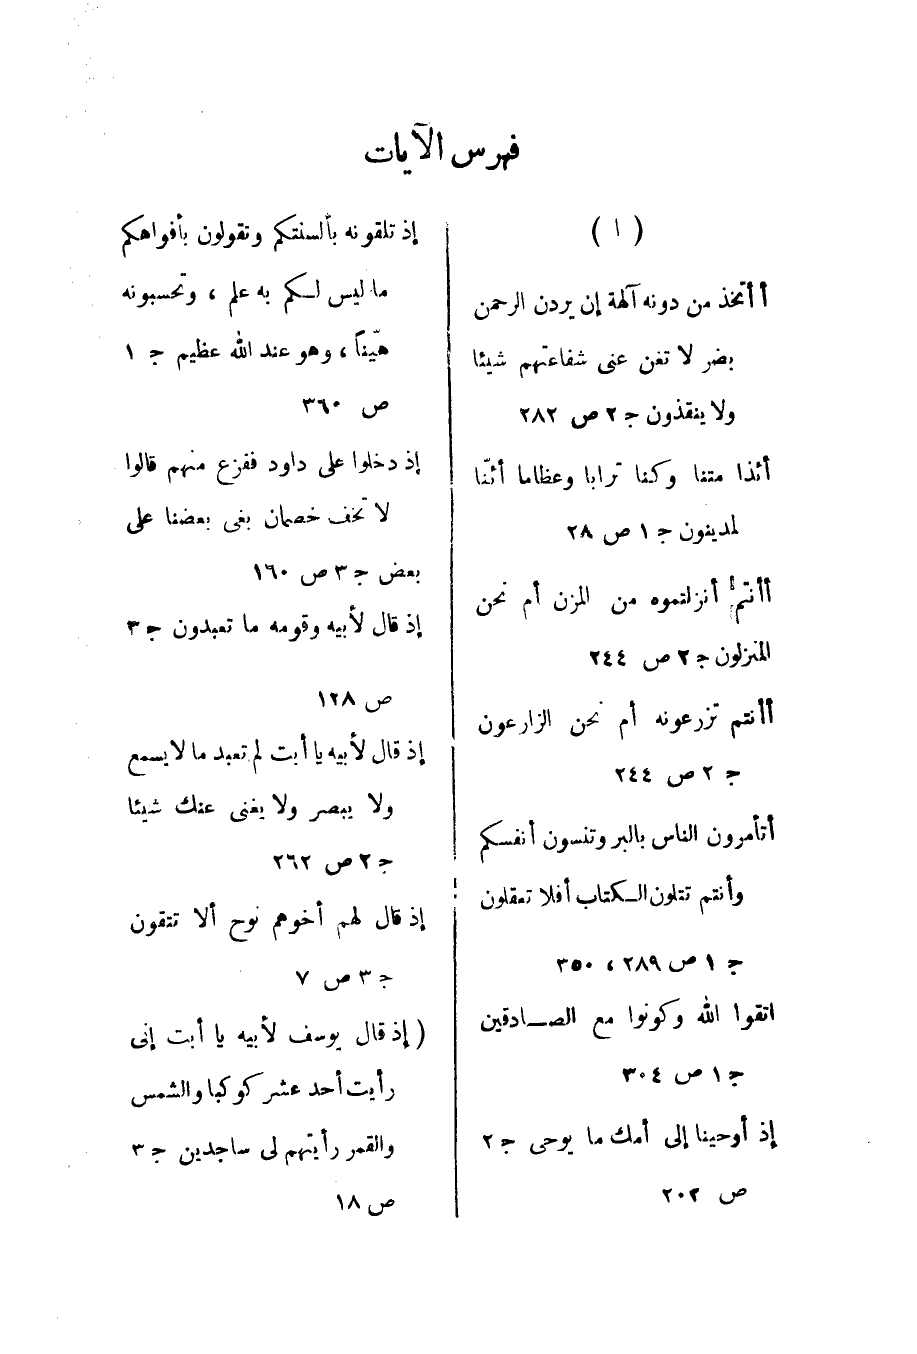 فهرس الآيات
( ا )
أأتخذ من دونه آلهة إن يردن الرحمن
بضر لا تغن عنى شفاعتهم شيئا
ولا ينقذون ج ٢ ص ٢٨٢
أئذا متنا وكنا ترابا وعظاما أئنّا
لمدينون ج ١ ص ٢٨
أأنتم أنزلتموه من المزن أم نحن
المنزلون ج ٢ ص ٢٤٤
أأنتم تزرعونه أم نحن الزارعون
ج ٢ ص ٢٤٤
أتأمرون الناس بالبر وتنسون أنفسكم
وأنتم تتلون الكتاب أفلا تعقلون
ج ١ ص ٢٨٩ ، ٣٥٠
اتقوا الله وكونوا مع الصادقين
ج ١ ص ٣٠٤
إذ أوحينا إلى أمك ما يوحى ج ٢
ص ٢٠٢
إذ تلقونه بألسنتكم وتقولون بأفواهكم
ما ليس لكم به علم ، وتحسبونه
هيّناً ، وهو عند الله عظيم ج ١
ص ٣٦٠
إذ دخلوا على داود ففزع منهم قالوا
لا تخف خصمان بغى بعضنا على
بعض ج ٣ ص ١٦٠
إذ قال لأبيه وقومه ما تعبدون ج ٣
ص ١٢٨
إذ قال لأبيه يا أبت لم تعبد ما لا يسمع
ولا يبصر ولا يغنى عنك شيئا
ج ٢ ص ٢٦٢
إذ قال لهم أخوهم نوح ألا تتقون
ج ٣ ص ٧
( إذ قال يوسف لأبيه يا أبت إنى
رأيت أحد عشر كوكبا والشمس
والقمر رأيتهم لى ساجدين ج ٣
ص ١٨